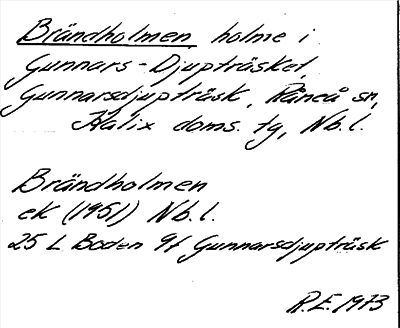 Brändholmen, holme i
Gunnars-Djupträsket,
Gunnarsdjupträsk, Råneå sn,
Kalix doms. tg, Nb.l.
Brändholmen
ek (1951) Nb.l.
25 L Boden 9f Gunnarsdjupträsk
R.E. 1973